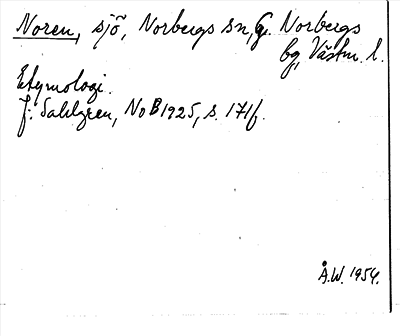 Noren, sjö, Norbergs sn, G. Norbergs
bg, Västm. l.
Etymologi.
J. Sahlgren, NoB 1925, s. 171f.
Å.W. 1954.